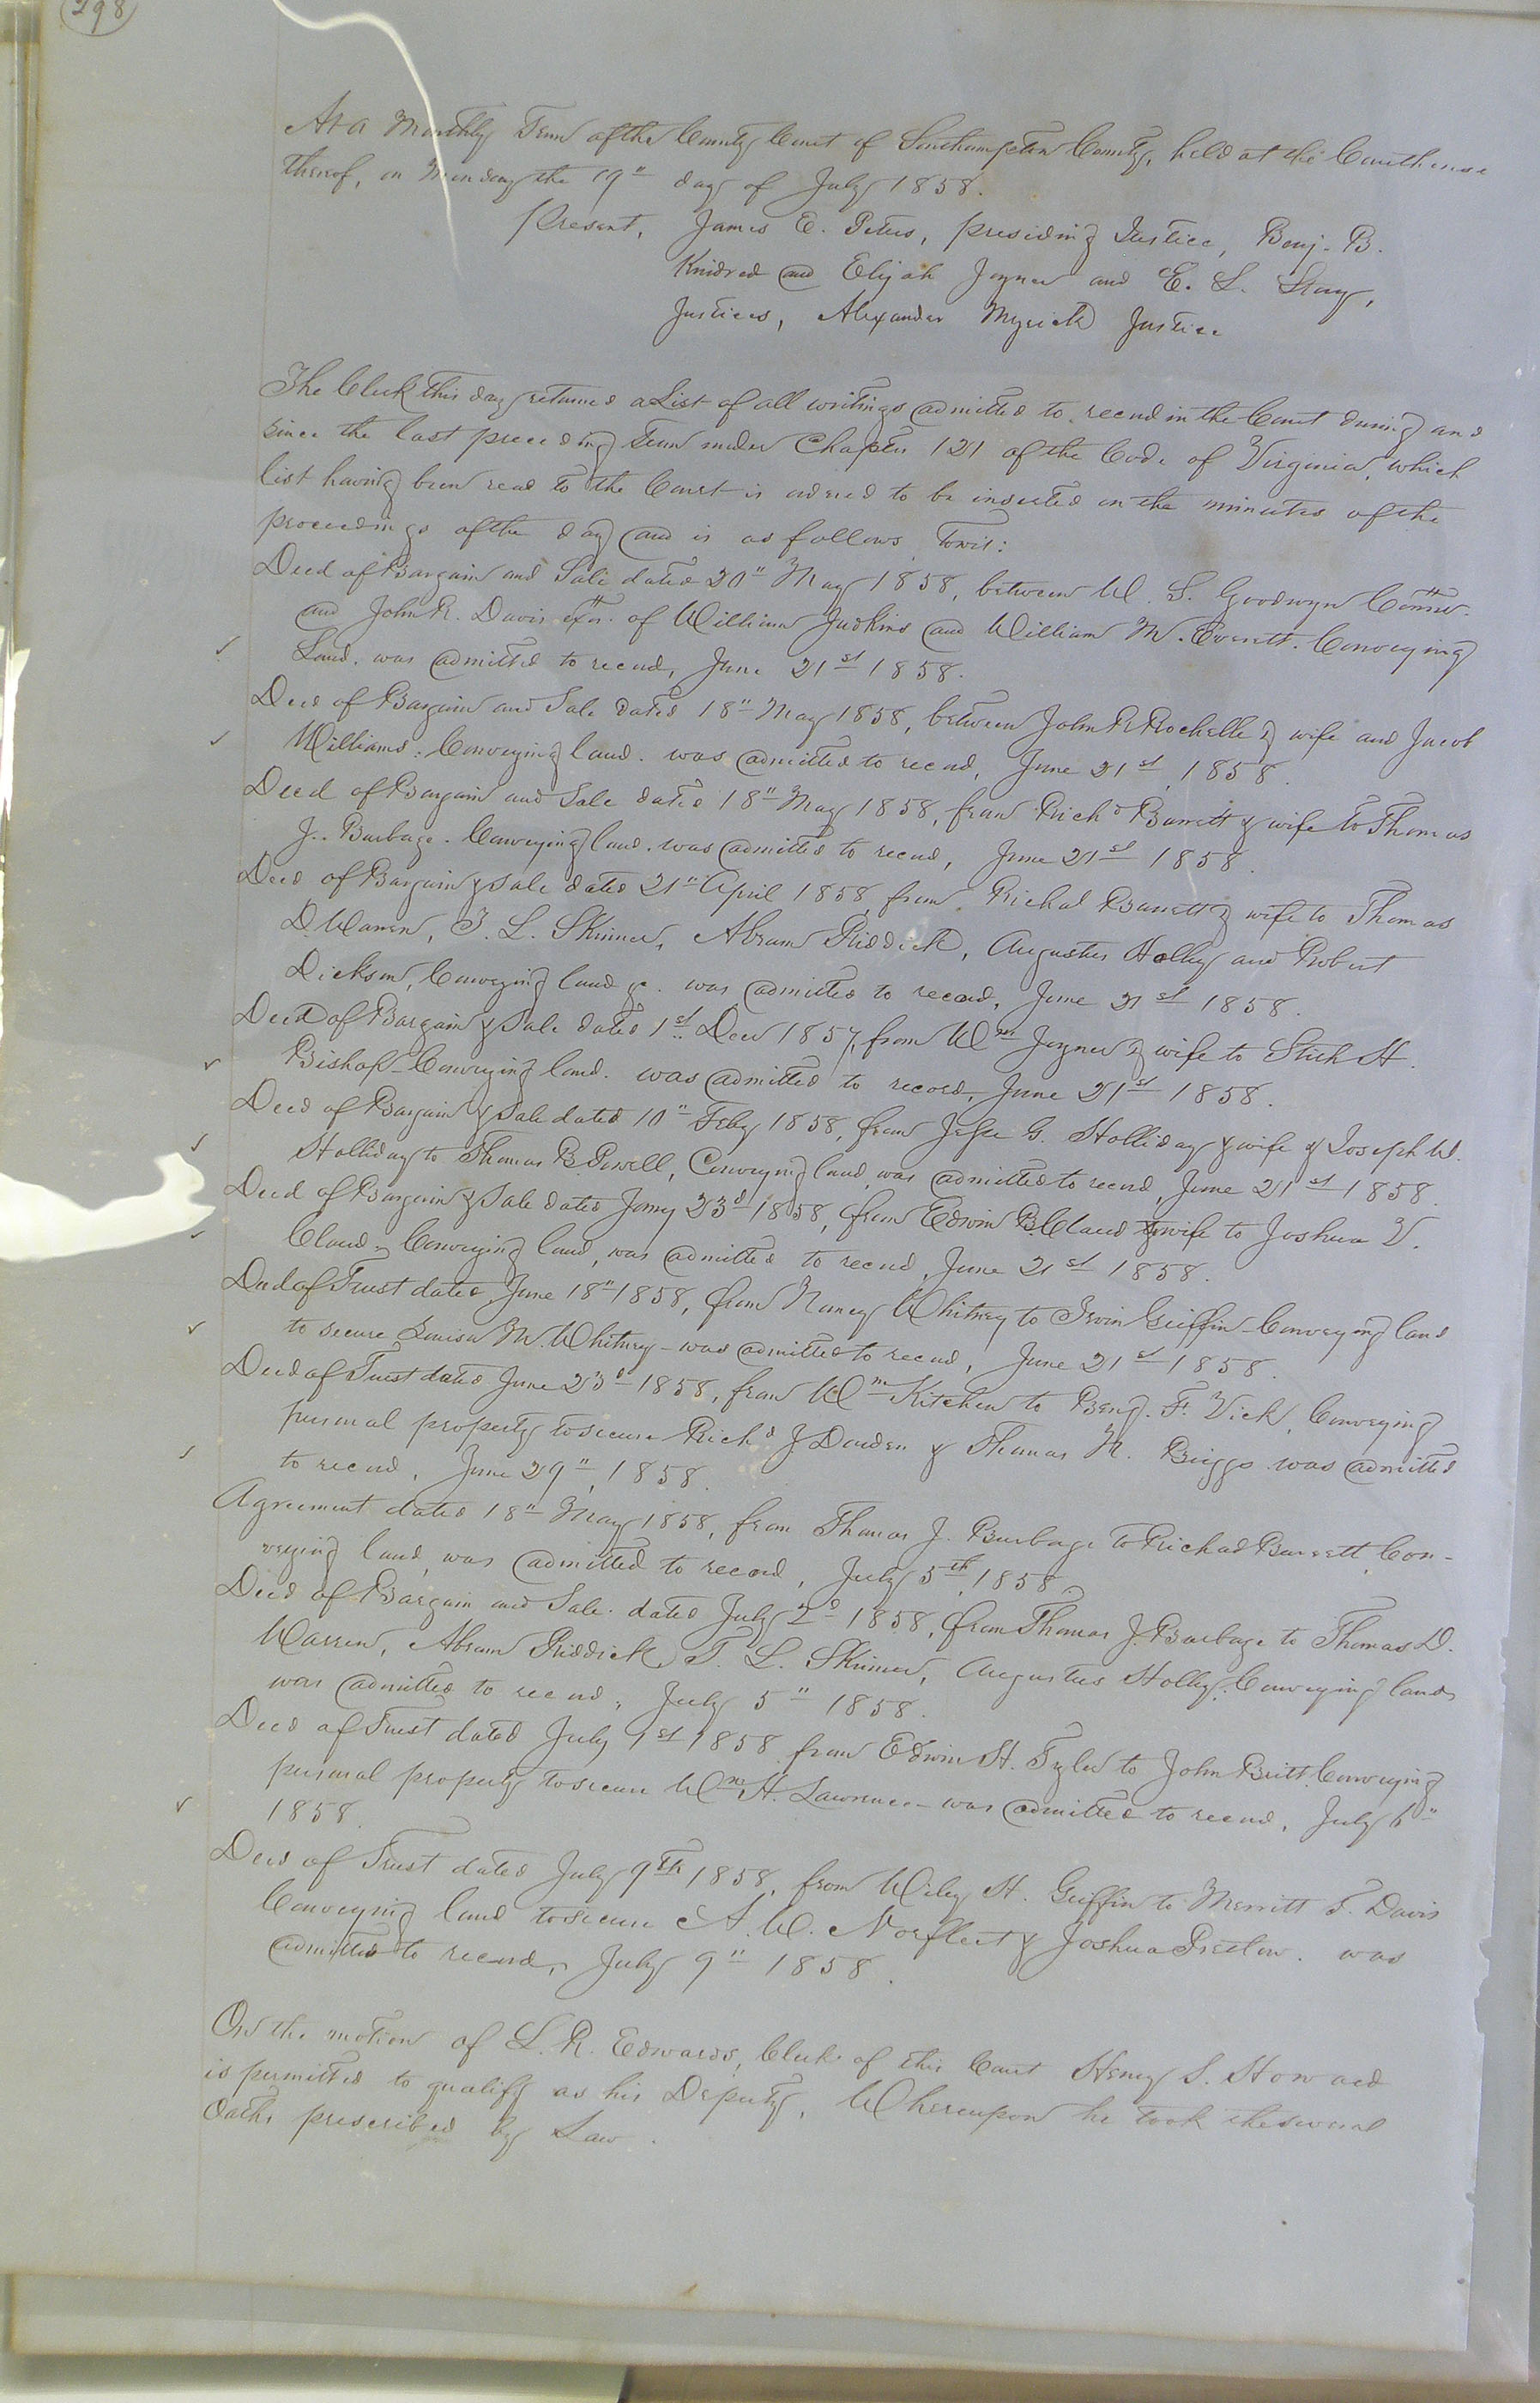 298
At a Monthly Term of the County Court of Southampton County, held at the Courthouse
thereof, on Monday the 19" day of July 1858.
Present, James E. Peters, presiding Justice, Benj. B.
Kindred and Elijah Joyner and E. S. Story,
Justices, Alexander Myrick Justice
The Clerk this day returned a List of all writings admitted to record in the Court during and
since the last preceding Term under Chapter 121 of the Code of Virginia, which
list having been read to the Court is ordered to be inserted on the minutes of the
proceedings of the day and is as follows, Towit:
Deed of Bargain and Sale dated 20" May 1858, between W. S. Goodwyn Commr.
and John R. Davis exr. of William Judkins and William M. Everett. Conveying
Land. was admitted to record, June 21st 1858.
Deed of Bargain and Sale dated 18" May 1858, between John R Rochelle & wife and Jacob
Williams. Conveying land. was admitted to record, June 21st 1858.
Deed of Bargain and Sale dated 18" May 1858, from Richd Barrett & wife to Thomas
J. Burbage. Conveying land. was admitted to record, June 21st 1858.
Deed of Bargain & Sale dated 21" April 1858, from Richad Barrett & wife to Thomas
D. Warren, T. L. Skinner, Abram Riddick, Augustus Holley and Robert
Dickson, Conveying land &c. was admitted to record, June 21st 1858.
Deed of Bargain & Sale dated 1st Decr 1857, from Wm Joyner & wife to Stith H.
Bishop - Conveying land. was admitted to record, June 21st 1858.
Deed of Bargain & Sale dated 10" Feby 1858, from Jesse G. Holliday & wife & Joseph W.
Holliday to Thomas B. Powell, Conveying land, was admitted to record, June 21st 1858.
Deed of Bargain & Sale dated Jany 23d 1858, from Edwin B. Claud & wife to Joshua V.
Claud - Conveying land, was admitted to record, June 21st 1858.
Deed of Trust dated June 18" 1858, from Nancy Whitney to Irvin Griffin - Conveying land
to secure Louisa M. Whitney - was admitted to record, June 21st 1858.
Deed of Trust dated June 23d 1858, from Wm Kitchen to Benj. F. Vick, Conveying
personal property to secure Richd J. Darden & Thomas N. Briggs was admitted
to record, June 29" 1858.
Agreement dated 18" May 1858, from Thomas J. Burbage to Richad Barrett Con-
veying land, was admitted to record, July 5th 1858.
Deed of Bargain and Sale. dated July 2d 1858, from Thomas J. Burbage to Thomas D.
Warren, Abram Riddick, T. L. Skinner, Augustus Holley. Conveying lands
was admitted to record, July 5" 1858.
Deed of Trust dated July 1st 1858 from Edwin H. Tyler to John Britt Conveying
personal property to secure Wm H. Lawrence - was admitted to record, July 6"
1858.
Deed of Trust dated July 9th 1858, from Wiley H. Griffin to Merritt F. Davis
Conveying land to secure A. W. Norfleet & Joshua Pretlow. was
admitted to record, July 9" 1858.
On the motion of L. R. Edwards, Clerk of this Court Henry S. Howard
is permitted to qualify as his Deputy, Whereupon he took the several
Oaths prescribed by Law.